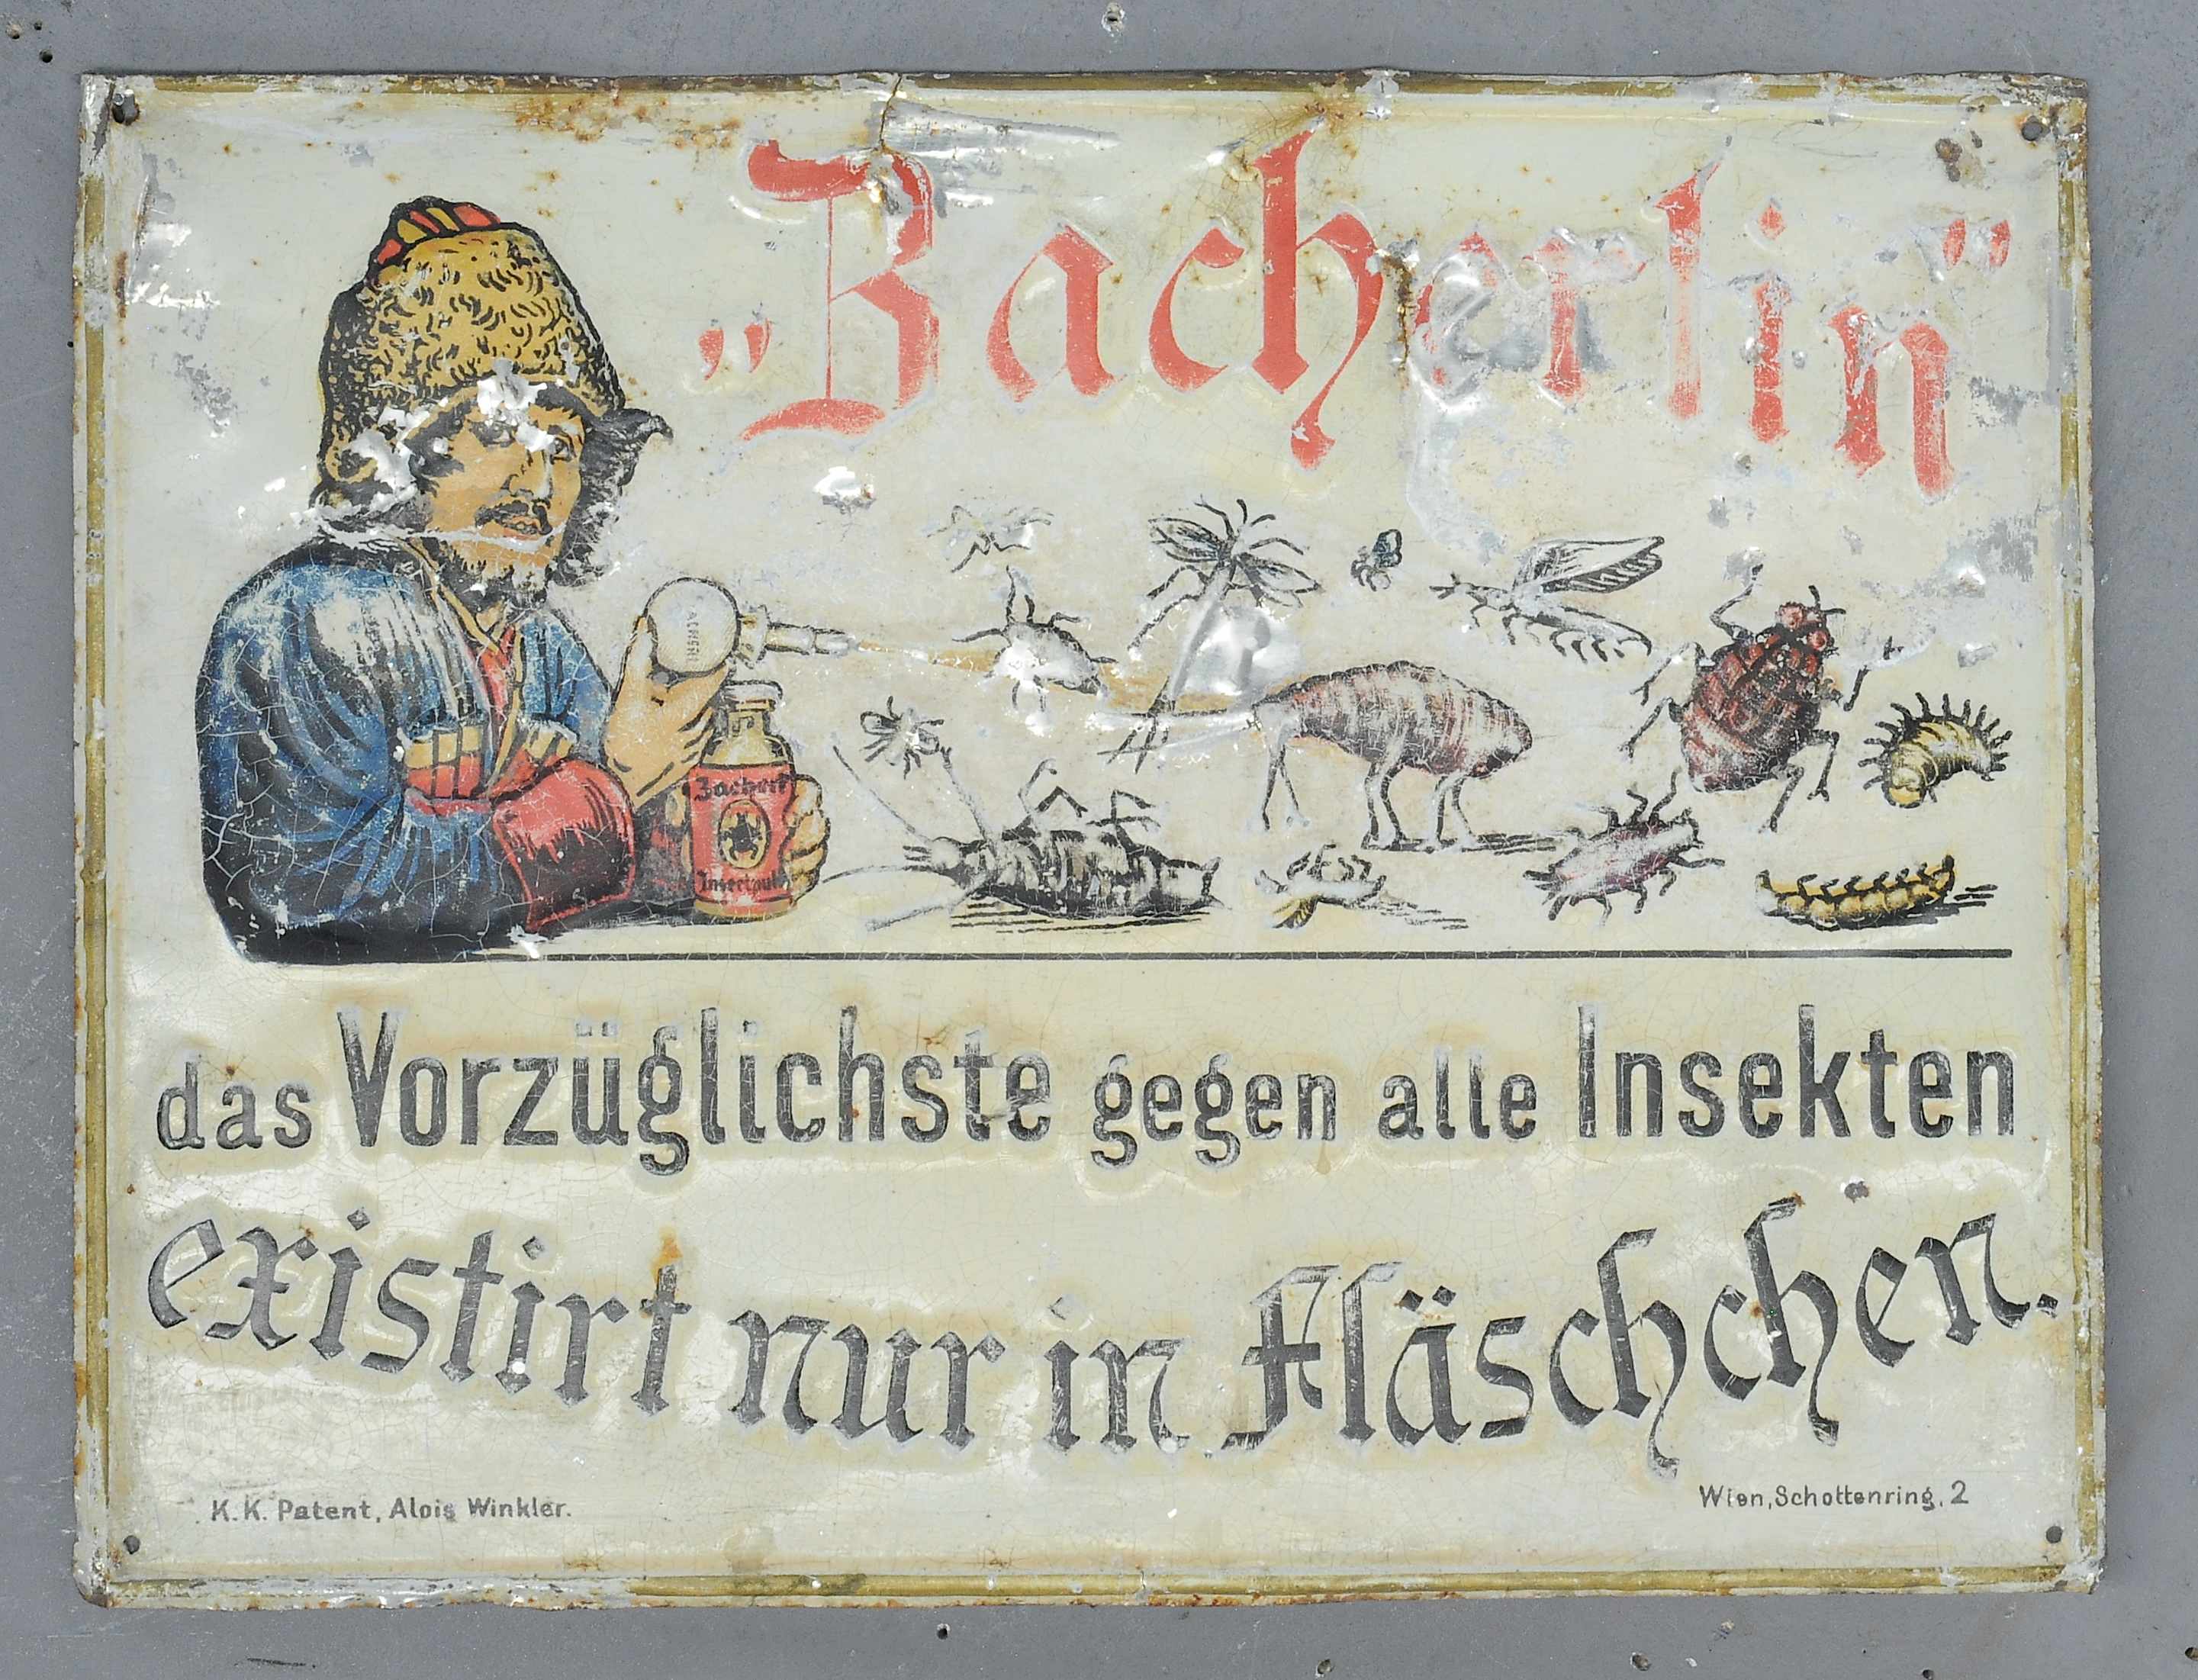 „Zacherlin"
ZACHERL
Zacherl
Insectpulv
das Vorzüglichste gegen alle Insekten
existirt nur in Fläschchen.
K. K. Patent, Alois Winkler.
Wien, Schottenring, 2